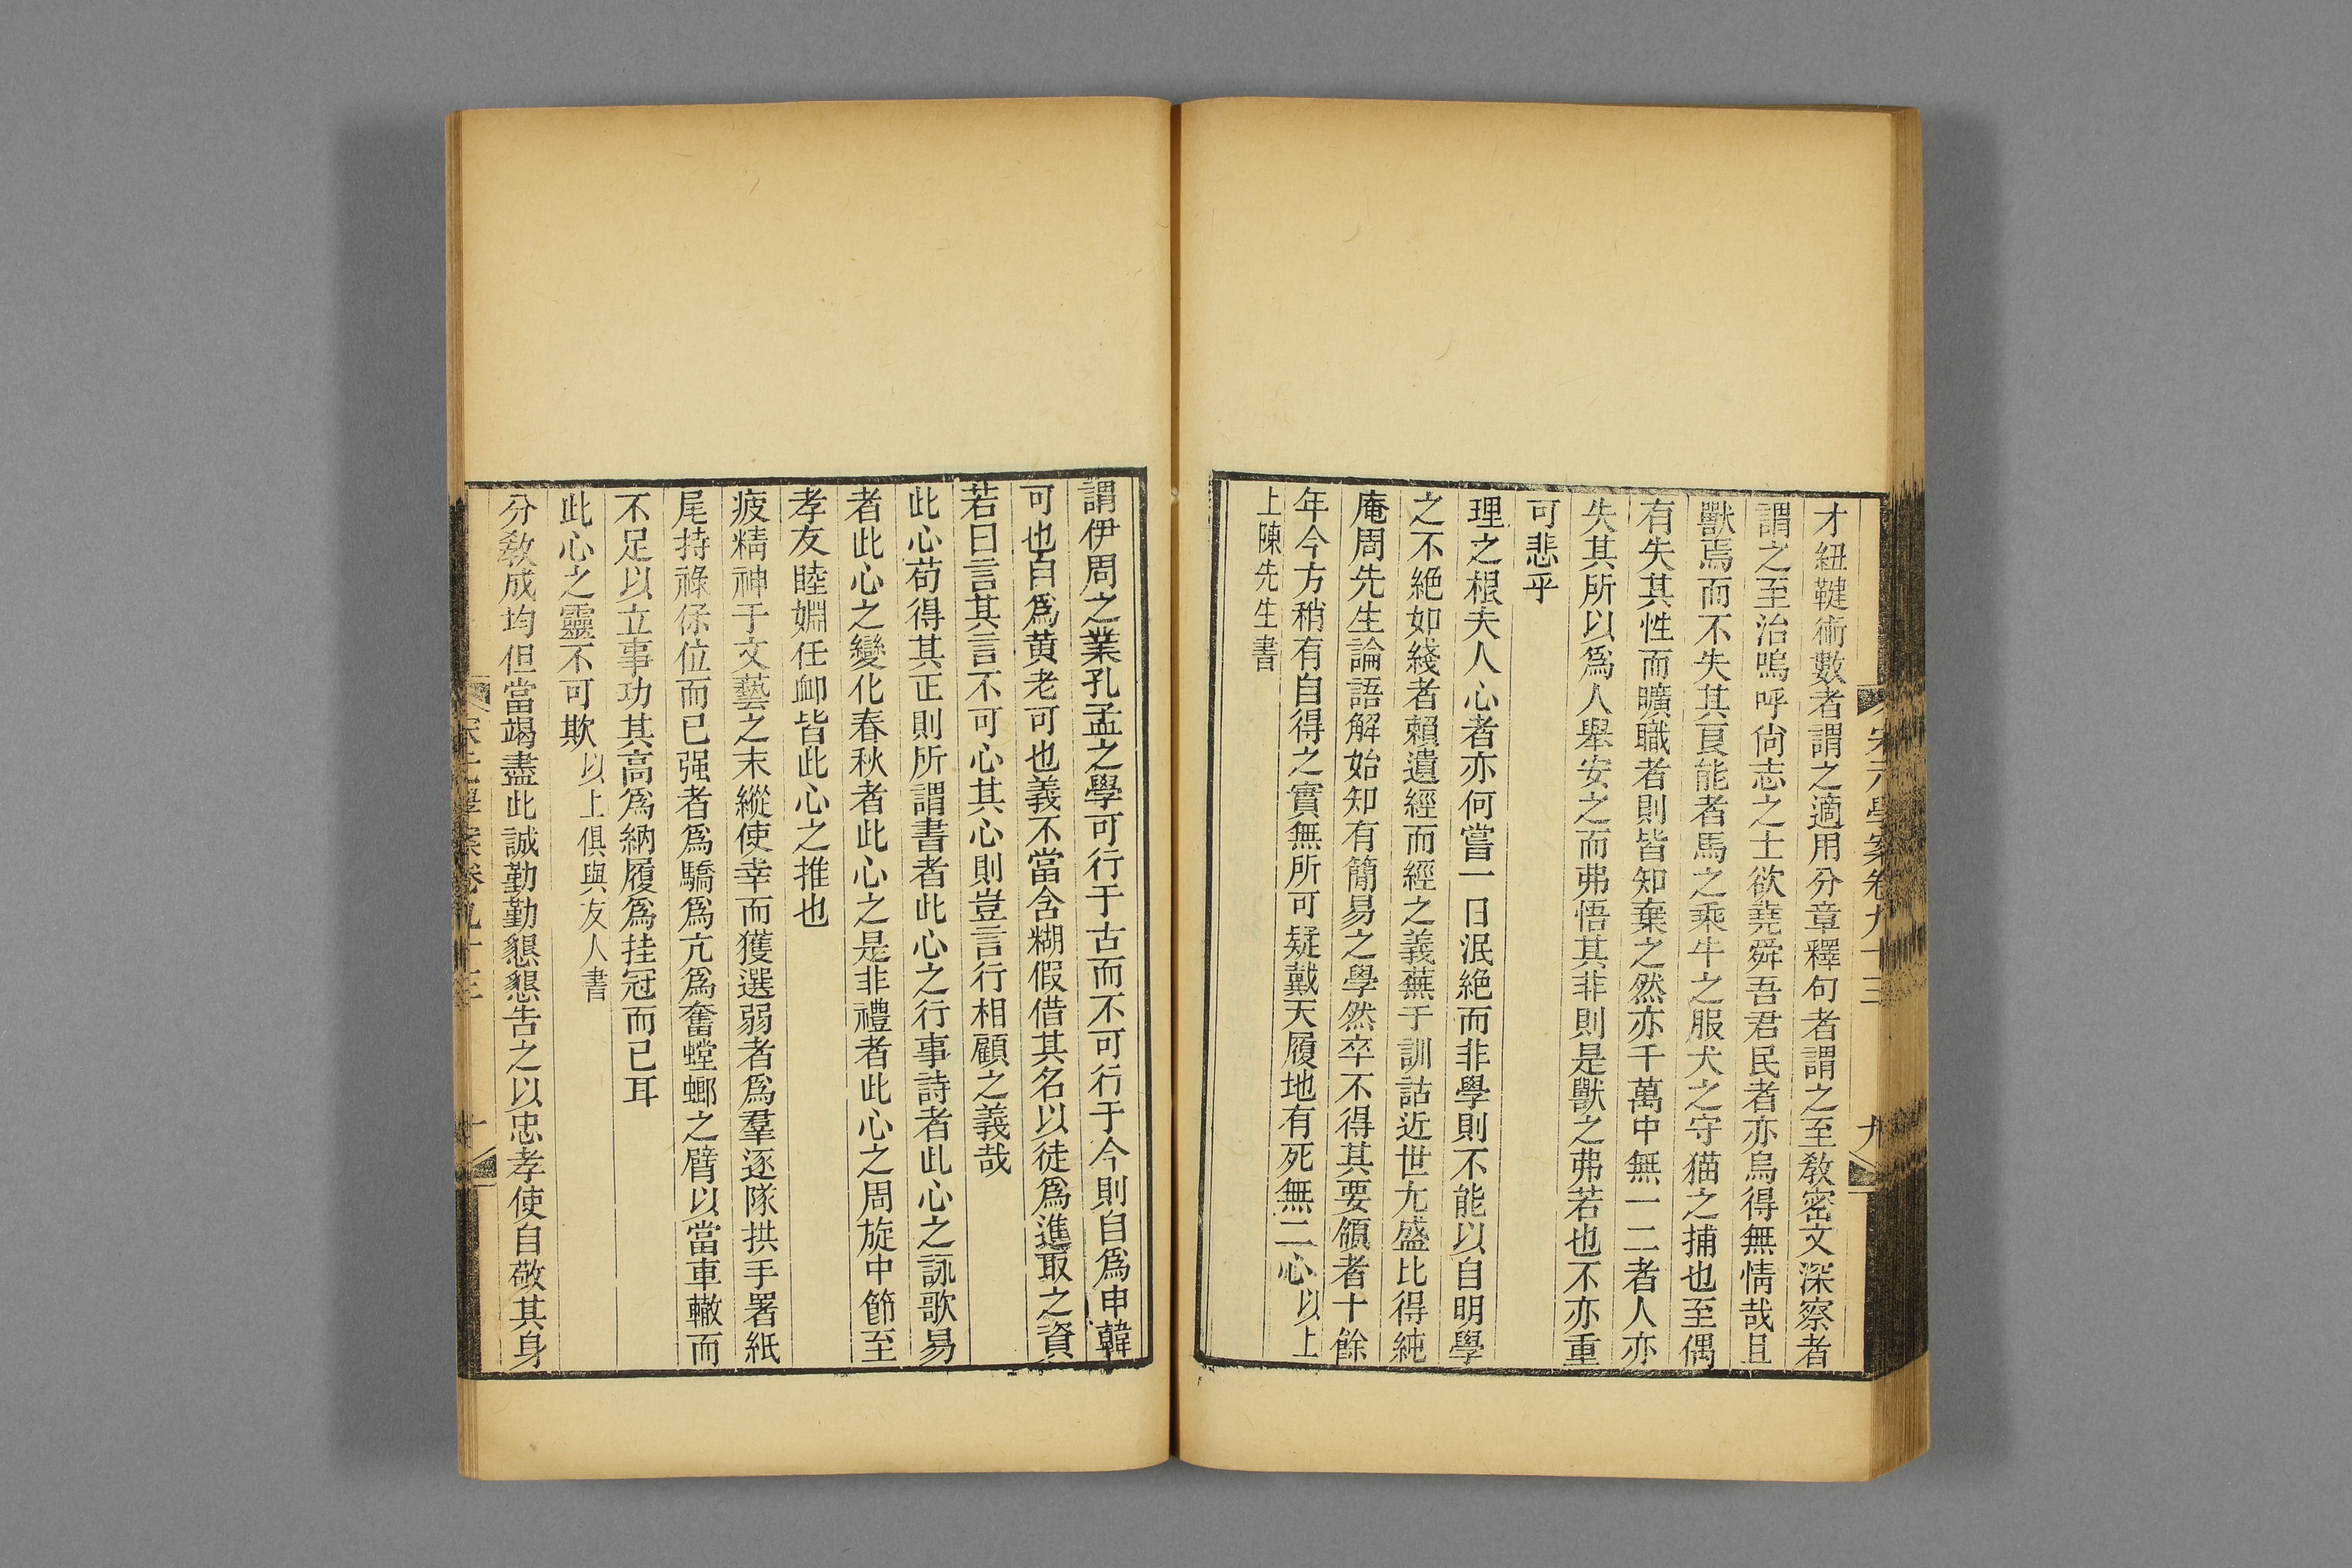 宋元學案卷九十三
九
才紐鞬術數者謂之適用分章釋句者謂之至敎密文深察者
謂之至治嗚呼尙志之士欲堯舜吾君民者亦烏得無情哉且
獸焉而不失其良能者馬之乘牛之服犬之守猫之捕也至偶
有失其性而曠職者則皆知棄之然亦千萬中無一二者人亦
失其所以爲人舉安之而弗悟其非則是獸之弗若也不亦重
可悲乎
理之根夫人心者亦何嘗一日泯絶而非學則不能以自明學
之不絶如綫者賴遺經而經之義蕪于訓詁近世尤盛比得純
庵周先生論語解始知有簡易之學然卒不得其要領者十餘
年今方稍有自得之實無所可疑戴天履地有死無二心以上
上陳先生書
謂伊周之業孔孟之學可行于古而不可行于今則自爲申韓
可也自爲黄老可也義不當含糊假借其名以徒爲進取之資
若曰言其言不可心其心則豈言行相顧之義哉
此心苟得其正則所謂書者此心之行事詩者此心之詠歌易
者此心之變化春秋者此心之是非禮者此心之周旋中節至
孝友睦婣任卹皆此心之推也
疲精神于文藝之末縱使幸而獲選弱者爲羣逐隊拱手署紙
尾持祿保位而已强者爲驕爲亢爲奮螳螂之臂以當車轍而
不足以立事功其高爲納履爲挂冠而已耳
此心之靈不可欺以上俱與友人書
分敎成均但當竭盡此誠勤勤懇懇吿之以忠孝使自敬其身
宋元學案卷九十三
十